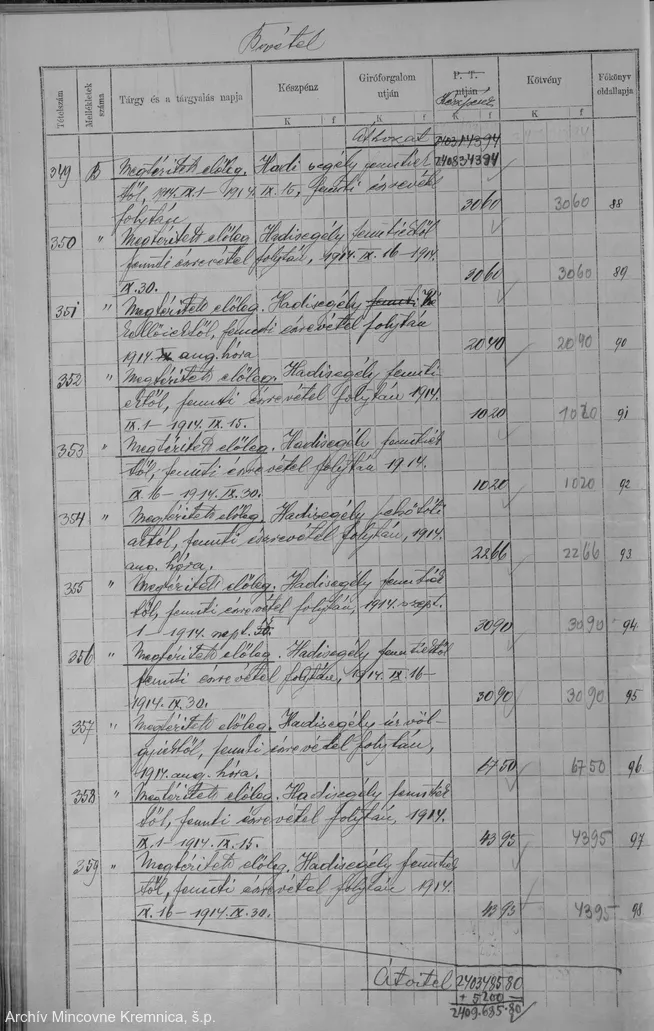 Bevétel
Tételszám
Mellékletek száma
Tárgy és a tárgyalás napja
Készpénz
Giróforgalom utján
P. T. utján
Készpénz
Kötvény
Főkönyv oldallapja
K f K f K f K f
Áthozat 2403143 94
349 B Megtérített előleg. Hadi segély fentiek 2408343 94
től, 1914. IX. 1 - 1914. IX. 15, fennti észrevétel
folytán 30 60 30 60 88
350 " Megtérített előleg. Hadisegély fentiektől
fennti észrevétel folytán, 1914. IX. 16 - 1914.
IX. 30. 30 60 30 60 89
351 " Megtérített előleg. Hadisegély fennti
fennti észrevétel folytán
1914. aug. hóra 20 40 20 40 90
352 " Megtérített előleg. Hadisegély fennti
ektől, fennti észrevétel folytán 1914.
IX. 1 - 1914. IX. 15. 10 20 10 20 91
353 " Megtérített előleg. Hadisegély fenntiek
től, fennti észrevétel folytán 1914.
IX. 16 - 1914. IX. 30. 10 20 10 20 92
354 " Megtérített előleg. Hadisegély
aktól, fennti észrevétel folytán, 1914.
aug. hóra. 22 66 22 66 93
355 " Megtérített előleg. Hadisegély fenntiek
től, fennti észrevétel folytán, 1914. szept.
1 - 1914. szept. 15. 30 90 30 90 94
356 " Megtérített előleg. Hadisegély fenntiektől
fennti észrevétel folytán, 1914. IX. 16 -
1914. IX. 30. 30 90 30 90 95
357 " Megtérített előleg. Hadisegély úrvöl-
gyiektől, fennti észrevétel folytán,
1914. aug. hóra. 67 50 67 50 96
358 " Megtérített előleg. Hadisegély fenntiek
től, fennti észrevétel folytán, 1914.
IX. 1 - 1914. IX. 15. 43 95 43 95 97
359 " Megtérített előleg. Hadisegély fenntiek
től, fennti észrevétel folytán 1914.
IX. 16 - 1914. IX. 30. 43 95 43 95 98
Átvitel 2403485 80
+ 5200 -
2409.685.80
Archív Mincovne Kremnica, š.p.